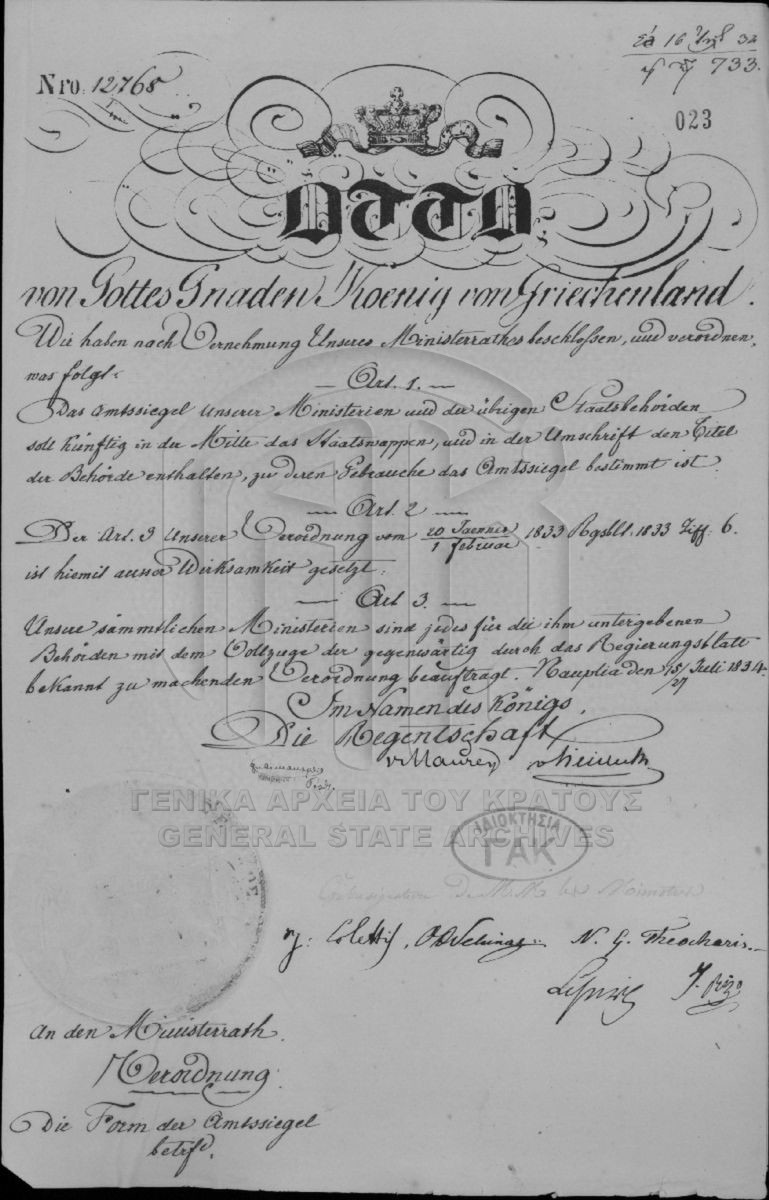 Nro. 12768
16 32
733.
023
OTTO
von Gottes Gnaden Koenig von Griechenland.
Wir haben nach Vernehmung Unseres Ministerrathes beschlossen, und verordnen,
was folgt:
Art. 1.
Das Amtssiegel Unserer Ministerien und der übrigen Staatsbehörden
soll künftig in der Mitte das Staatswappen, und in der Umschrift den Titel
der Behörde enthalten, zu deren Gebrauche das Amtssiegel bestimmt ist.
Art. 2
Der Art. 3 Unserer Verordnung vom 20 Jaenner / 1 Februar 1833 Rgsblt. 1833 Ziff: 6.
ist hiemit ausser Wirksamkeit gesetzt.
Art 3.
Unsere sämmtlichen Ministerien sind jedes für die ihm untergebenen
Behörden mit dem Vollzuge der gegenwärtig durch das Regierungsblatt
bekannt zu machenden Verordnung beauftragt. Nauplia den 15/27 Juli 1834.
Im Namen des Königs.
Die Regentschaft
v. Maurer v. Heideck
ΓΕΝΙΚΑ ΑΡΧΕΙΑ ΤΟΥ ΚΡΑΤΟΥΣ
GENERAL STATE ARCHIVES
ΙΔΙΟΚΤΗΣΙΑ
ΓΑΚ
J. Coletti, N. G. Theocharis
An den Ministerrath.
Verordnung
Die Form der Amtssiegel
betrfd.